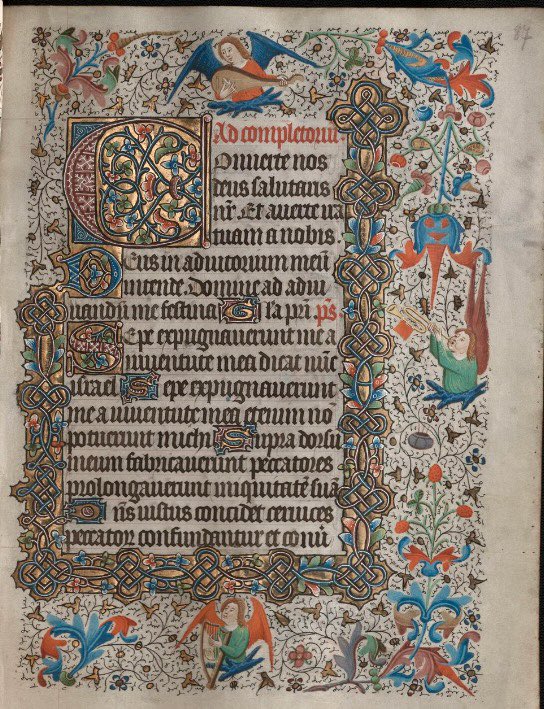 87
Ad completoriū
Conuerte nos
deus salutaris
nr̄. Et auerte irā
tuam a nobis.
Deus in adiutorium meū
intende. Domine ad adiu
uandū me festina. Gl̄a pr̄i. p̄s
Sepe expugnauerunt me a
iuuentute mea dicat nūc
israel. Sepe expugnauerunt
me a iuuentute mea etenim nō
potuerunt michi. Supra dorsū
meum fabricauerunt peccatores
prolongauerunt iniquitatē suā
Dn̄s iustus concidet ceruices
peccatorū confundantur et cōuer